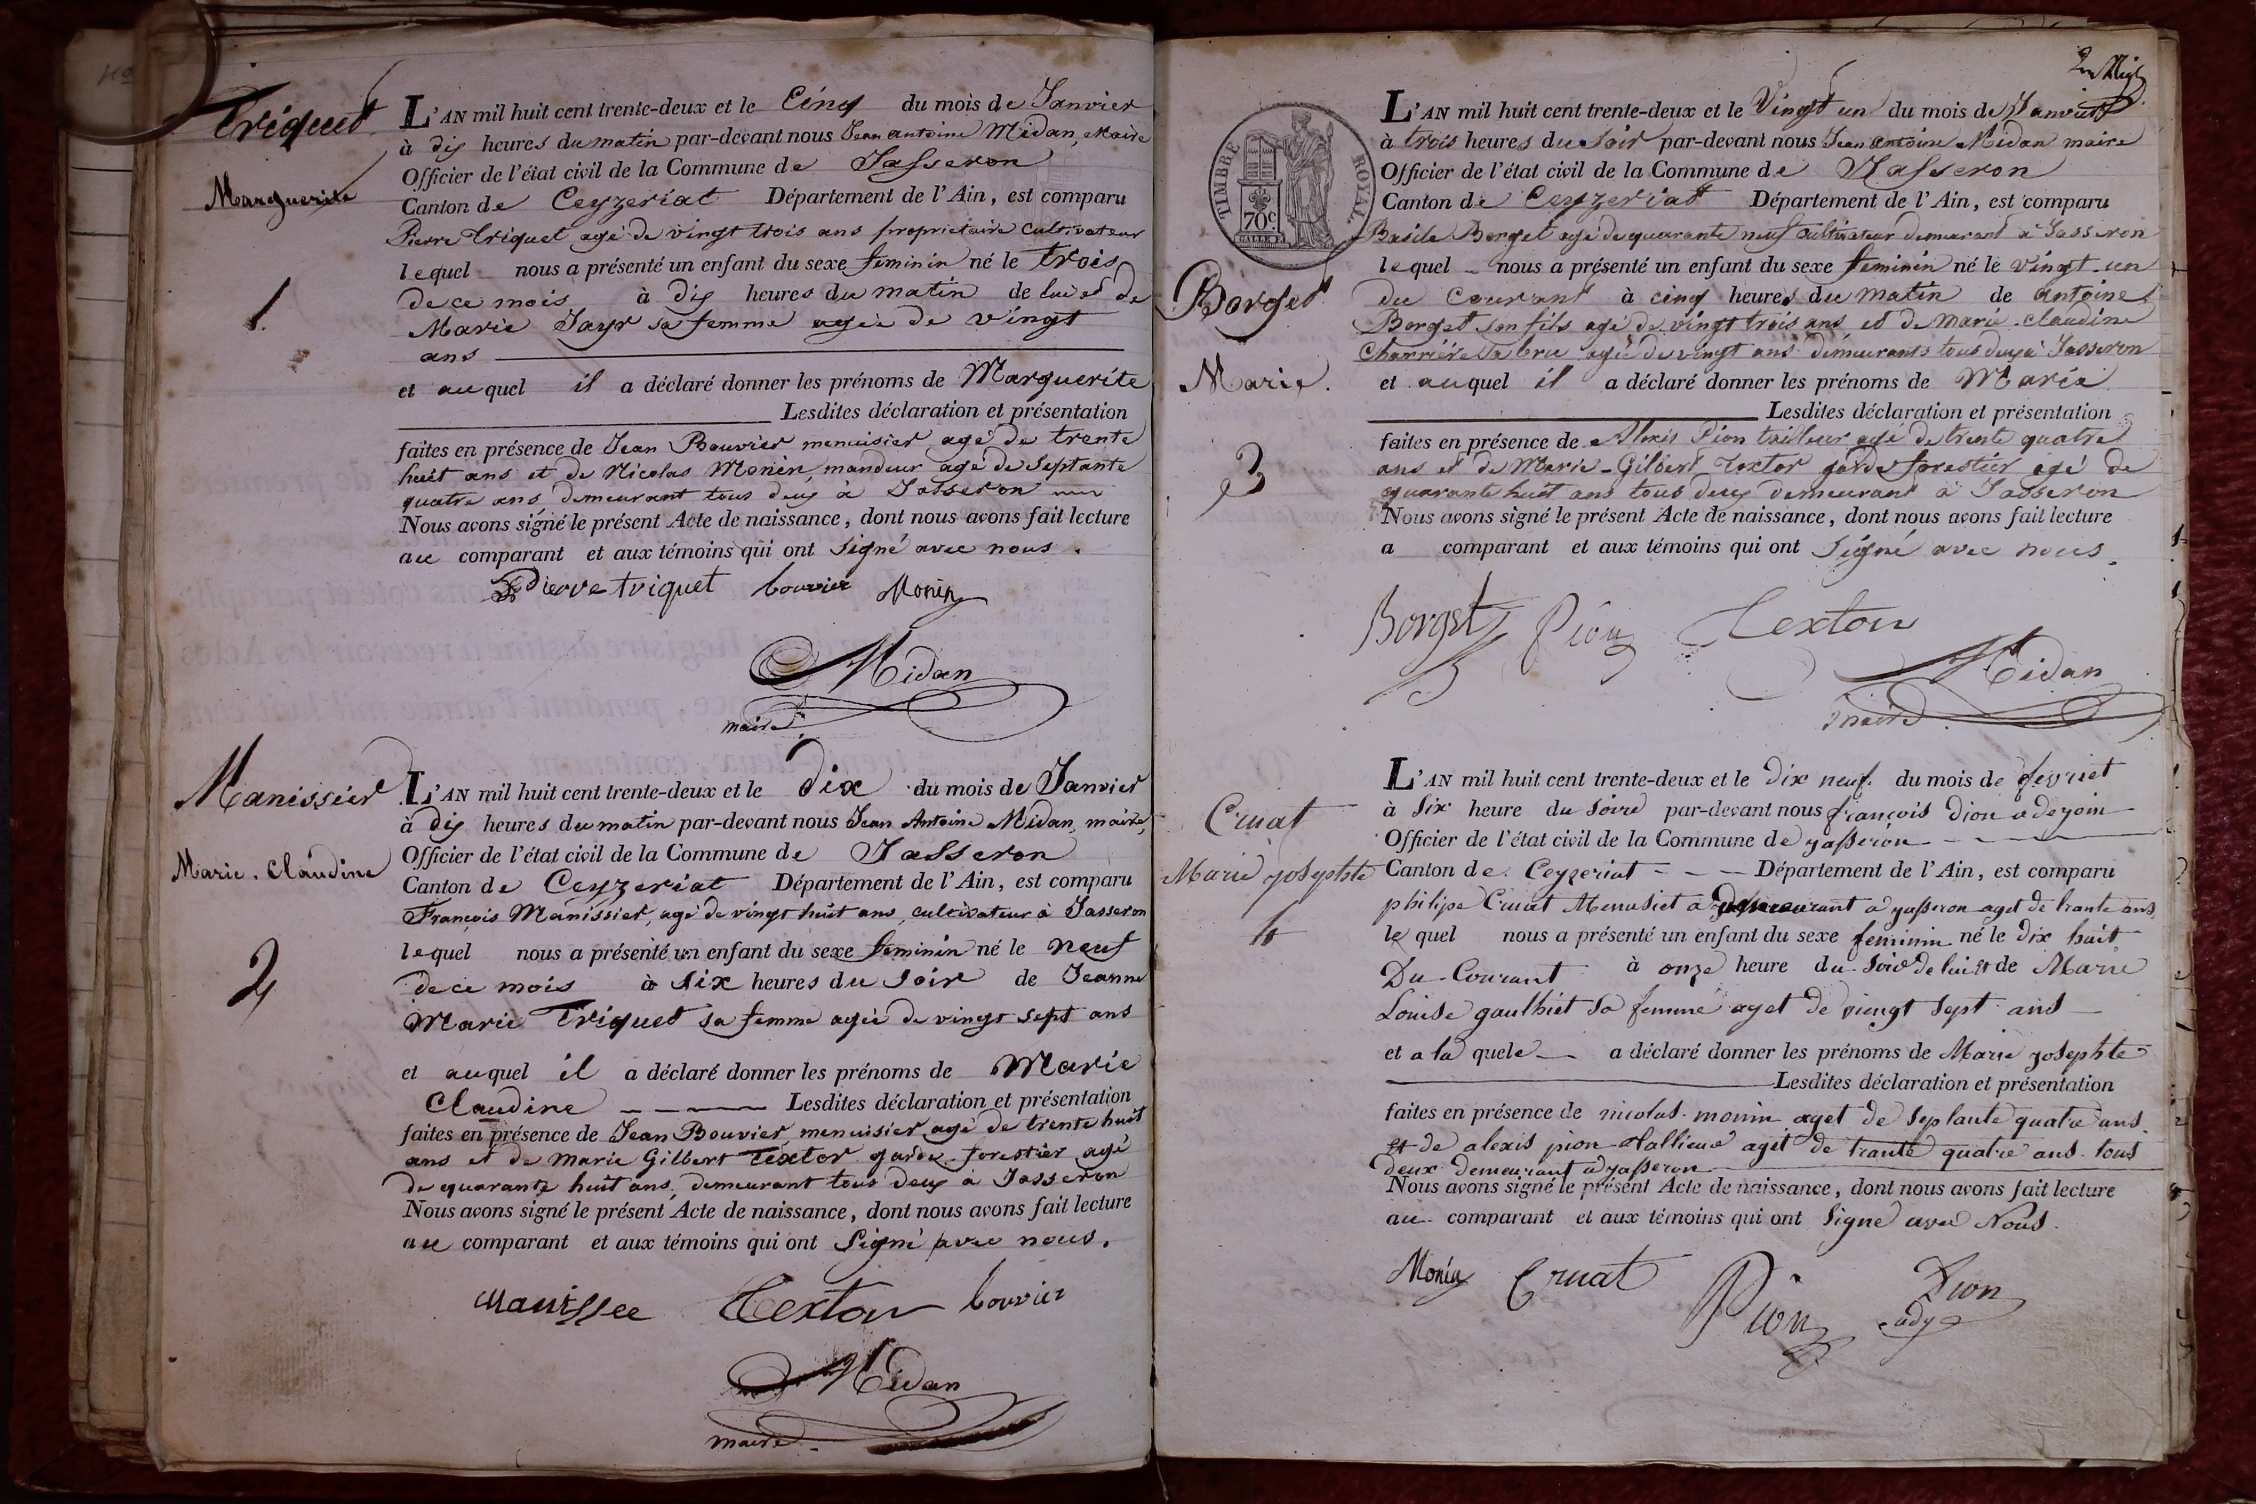 Triquet
Marguerite
1
L'AN mil huit cent trente-deux et le Cinq du mois de Janvier
à dix heures du matin par-devant nous Jean antoine Midan, Maire
Officier de l'état civil de la Commune de Jasseron
Canton de Ceyzeriat Département de l'Ain, est comparu
Pierre Triquet agé de vingt trois ans proprietaire cultivateur
lequel nous a présenté un enfant du sexe feminin né le trois
de ce mois à dix heures du matin de lui et de
Marie Jayr sa femme agée de vingt
ans
et auquel il a déclaré donner les prénoms de Marguerite
Lesdites déclaration et présentation
faites en présence de Jean Bouvier menuisier agé de trente
huit ans et de Nicolas Monin mandeur agé de Septante
quatre ans demeurant tous deux à Jasseron
Nous avons signé le présent Acte de naissance, dont nous avons fait lecture
au comparant et aux témoins qui ont signé avec nous.
Pierre triquet bouvier Monin
Midan
maire
Manissier
Marie-Claudine
2
L'AN mil huit cent trente-deux et le dix du mois de Janvier
à dix heures du matin par-devant nous Jean Antoine Midan, maire,
Officier de l'état civil de la Commune de Jasseron
Canton de Ceyzeriat Département de l'Ain, est comparu
François Manissier, agé de vingt huit ans, cultivateur à Jasseron
lequel nous a présenté un enfant du sexe feminin né le neuf
de ce mois à six heures du soir de Jeanne
Marie Triquet sa femme agée de vingt sept ans
et auquel il a déclaré donner les prénoms de Marie
Claudine Lesdites déclaration et présentation
faites en présence de Jean Bouvier, menuisier agé de trente huit
ans et de Marie Gilbert Textor garde-forestier agé
de quarante huit ans, demeurant tous deux à Jasseron
Nous avons signé le présent Acte de naissance, dont nous avons fait lecture
au comparant et aux témoins qui ont Signé avec nous.
Manissee Textor bouvier
Midan
maire
TIMBRE ROYAL
70c.
Borget
Marie.
3
L'AN mil huit cent trente-deux et le Vingt un du mois de Janvier
à trois heures du soir par-devant nous Jean antoine Midan maire
Officier de l'état civil de la Commune de Jasseron
Canton de Ceyzeriat Département de l'Ain, est comparu
Basile Borget agé de quarante neuf cultivateur demeurant à Jasseron
lequel nous a présenté un enfant du sexe feminin né le vingt-un
du courant à cinq heures du matin de antoine
Borget son fils agé de vingt trois ans et de marie-claudine
Charrière sa bru agé de vingt ans demeurants tous deux à Jasseron
et auquel il a déclaré donner les prénoms de Marie
Lesdites déclaration et présentation
faites en présence de Alexis Pion tailleur agé de trente quatre
ans et de Marie-Gilbert Textor garde forestier agé de
quarante huit ans tous deux demeurant à Jasseron
Nous avons signé le présent Acte de naissance, dont nous avons fait lecture
a comparant et aux témoins qui ont signé avec nous.
Borget Pion Textor
Midan
maire
Cruat
Marie josephte
4
L'AN mil huit cent trente-deux et le dix neuf. du mois de fevriet
à six heure du soire par-devant nous françois Dion adejoin
Officier de l'état civil de la Commune de yasseron
Canton de Ceyzeriat Département de l'Ain, est comparu
philipe Cruat Menusiet a a yasseron aget de trante ans
le quel nous a présenté un enfant du sexe feminin né le dix huit
Du Courant à onze heure du soir de lui et de Marie
Louise gaulhiet sa femme aget de viengt sept ans
et a la quele a déclaré donner les prénoms de Marie josephte
Lesdites déclaration et présentation
faites en présence de nicolas monin aget de septante quatre ans.
et de alexis pion tallieur aget de trante quatre ans tous
deux demeurant a yasseron
Nous avons signé le présent Acte de naissance, dont nous avons fait lecture
au comparant et aux témoins qui ont signe avec Nous.
Monin Cruat Pion Dion
adj